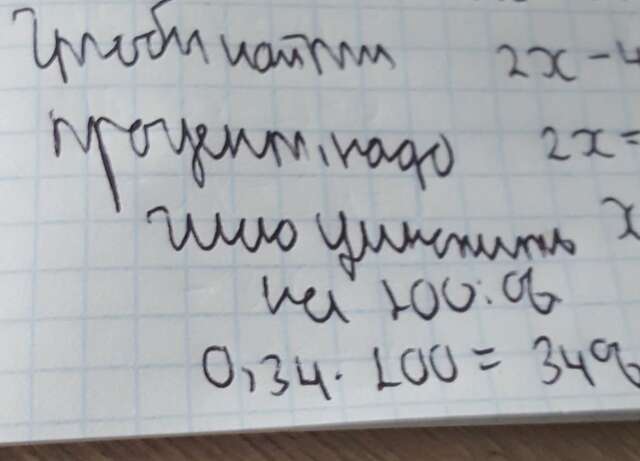 Чтобы найти 2x - 4
процент, надо 2x =
число умножить x
на 100%
0,34 · 100 = 34%